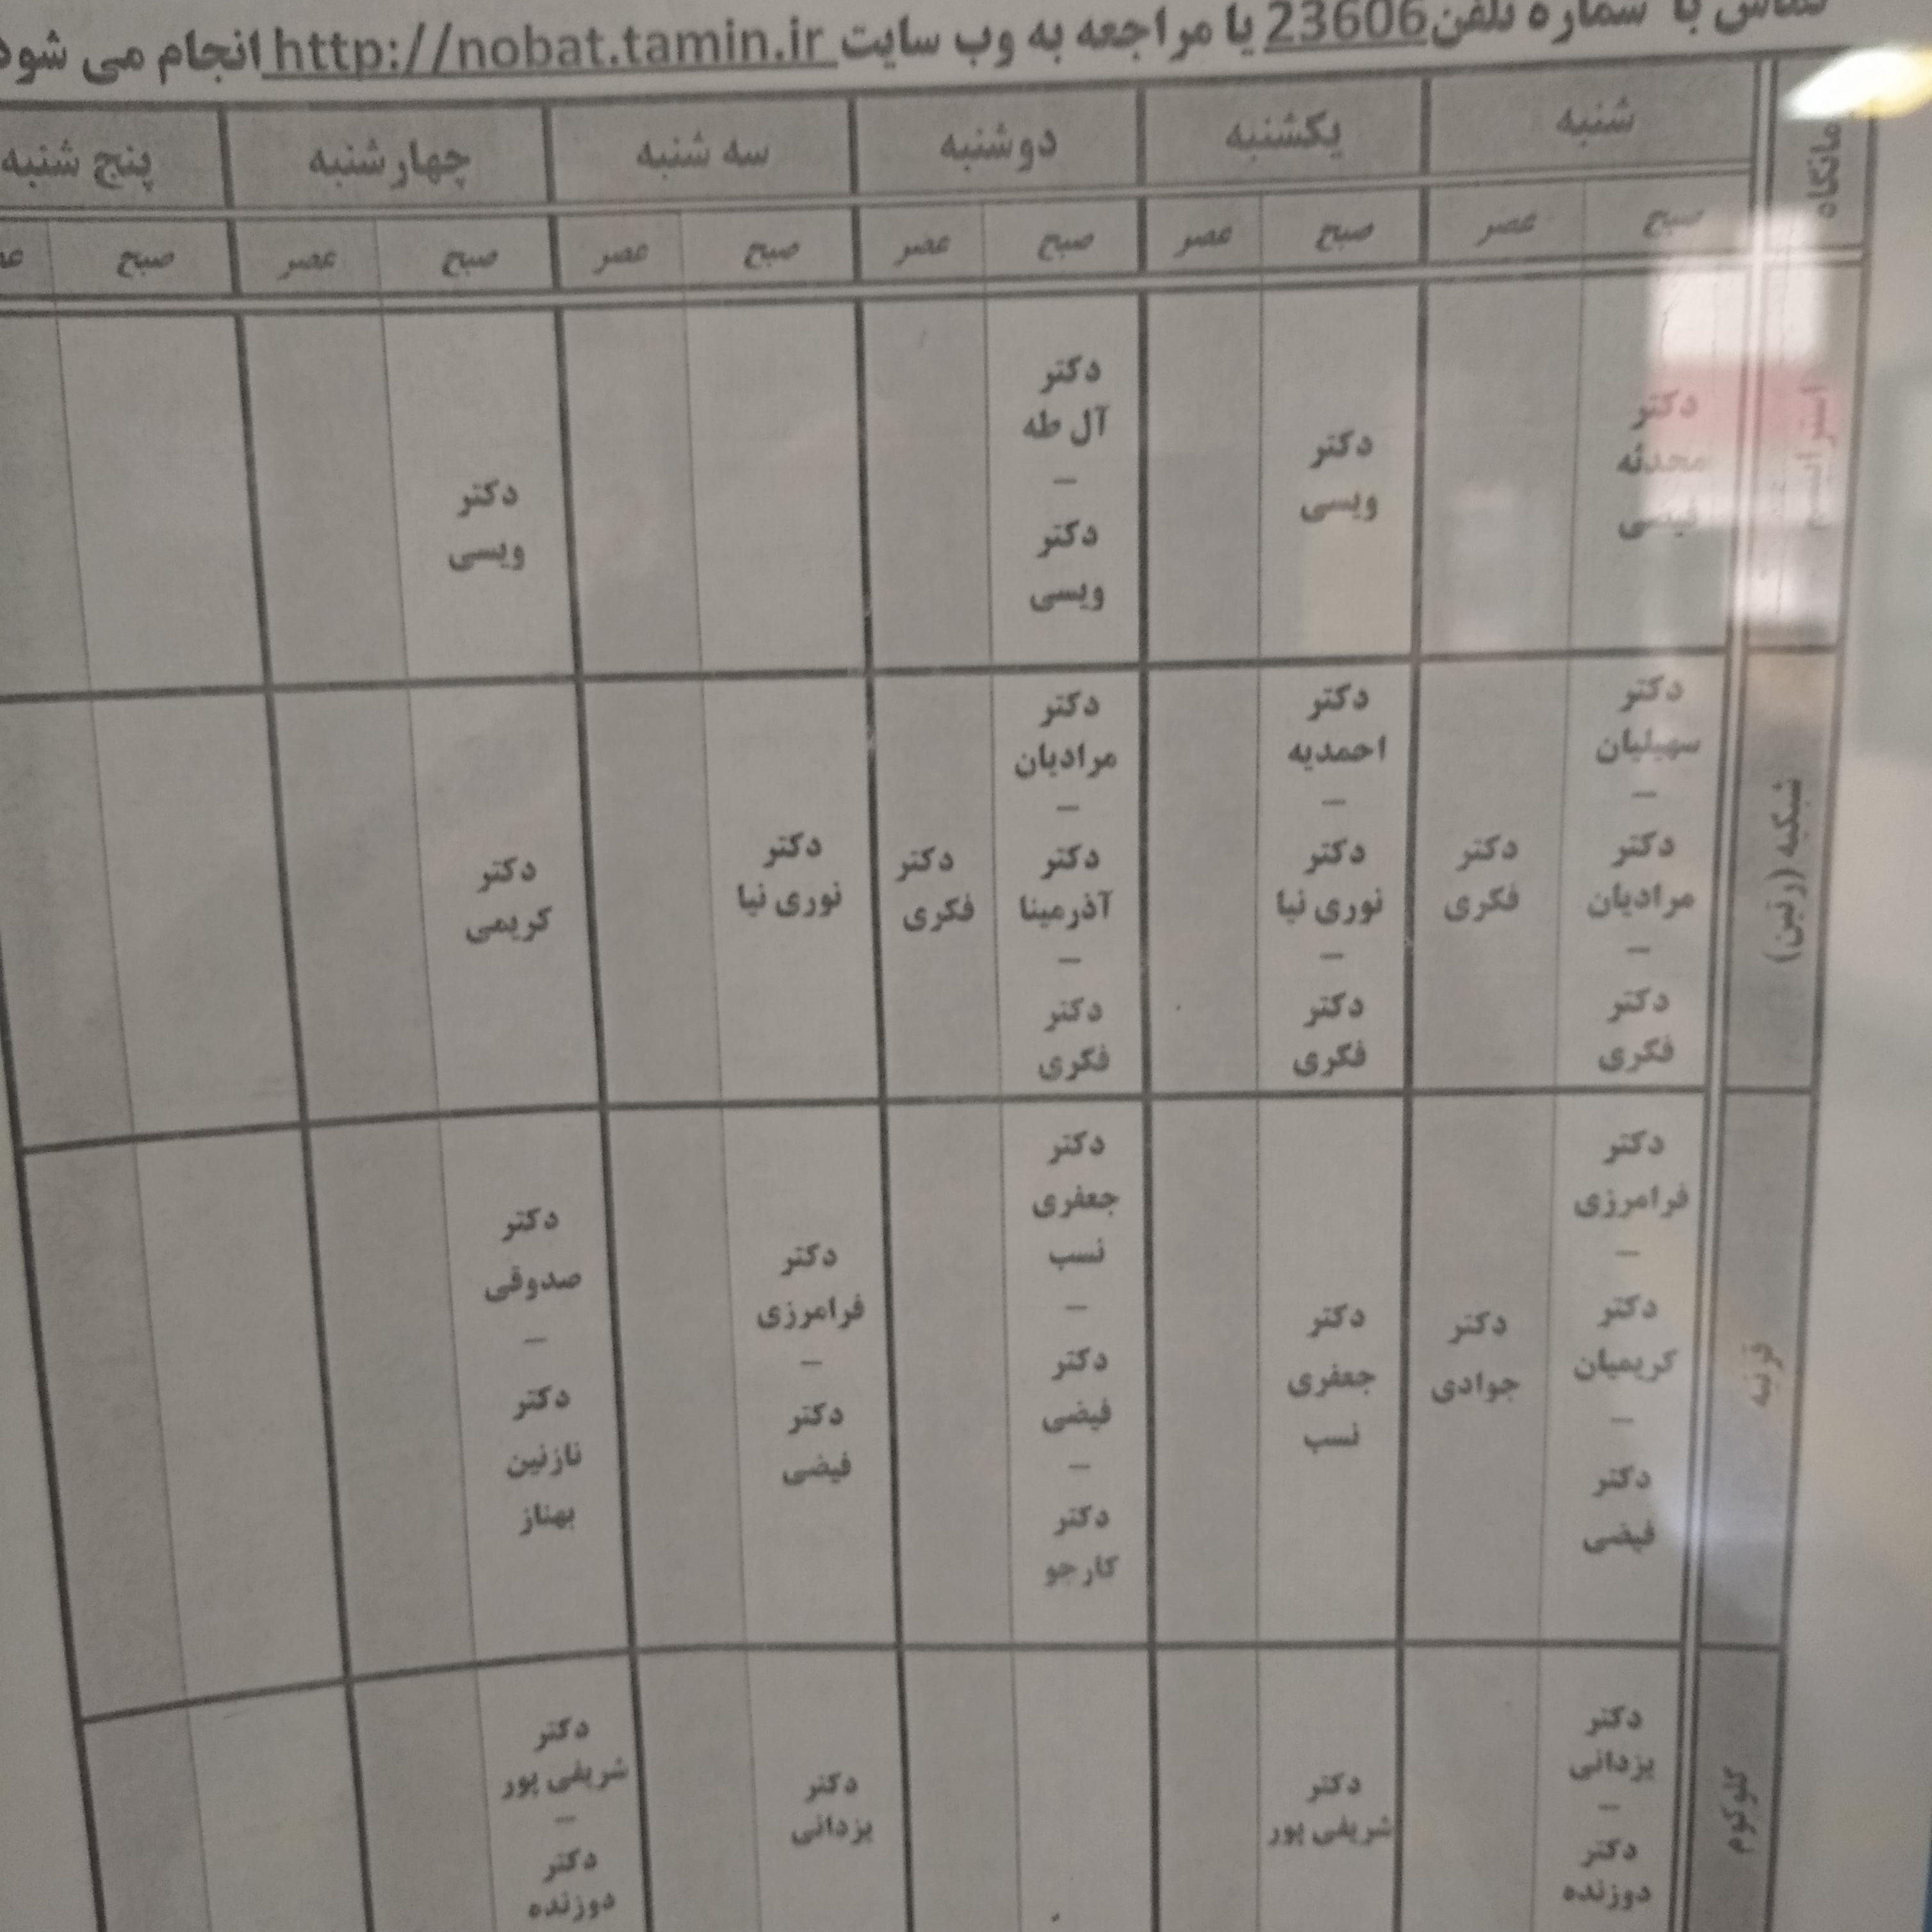 تماس با شماره تلفن 23606 یا مراجعه به وب سایت http://nobat.tamin.ir انجام می شود
شنبه یکشنبه دوشنبه سه شنبه چهارشنبه پنج شنبه
صبح عصر صبح عصر صبح عصر صبح عصر صبح عصر صبح
استرابیسم
دکتر
محدثه
دکتر
ویسی
دکتر
آل طه
–
دکتر
ویسی
دکتر
ویسی
شبکیه (رتین)
دکتر
سهیلیان
–
دکتر
مرادیان
–
دکتر
فکری
دکتر
فکری
دکتر
احمدیه
–
دکتر
نوری نیا
–
دکتر
فکری
دکتر
مرادیان
–
دکتر
آذرمینا
–
دکتر
فکری
دکتر
فکری
دکتر
نوری نیا
دکتر
کریمی
قرنیه
دکتر
فرامرزی
–
دکتر
کریمیان
–
دکتر
فیضی
دکتر
جوادی
دکتر
جعفری
نسب
دکتر
جعفری
نسب
–
دکتر
فیضی
–
دکتر
کارجو
دکتر
فرامرزی
–
دکتر
فیضی
دکتر
صدوقی
–
دکتر
نازنین
بهناز
گلوکوم
دکتر
یزدانی
–
دکتر
دوزنده
دکتر
شریفی پور
دکتر
یزدانی
دکتر
شریفی پور
–
دکتر
دوزنده